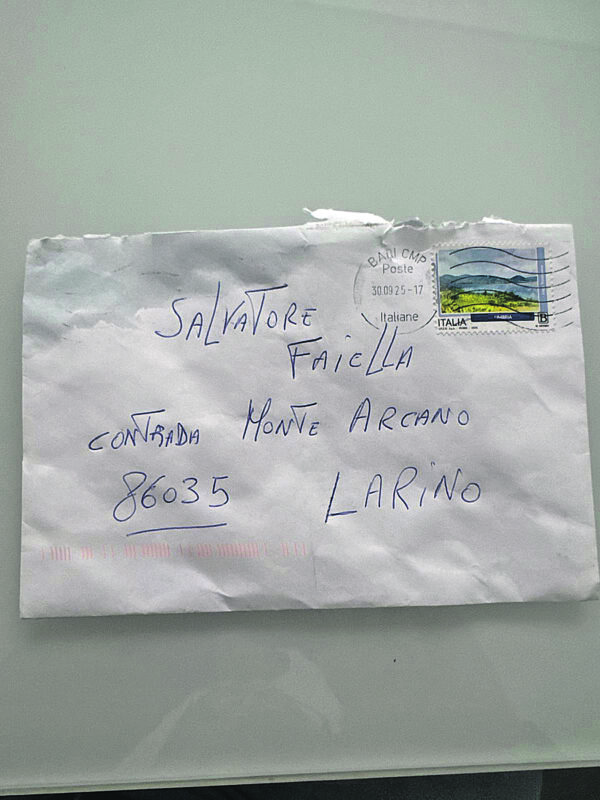 BARI CMP
Poste
30.09.25-17
Italiane
ITALIA
B
SALVATORE
FAIELLA
CONTRADA MONTE ARCANO
86035 LARINO